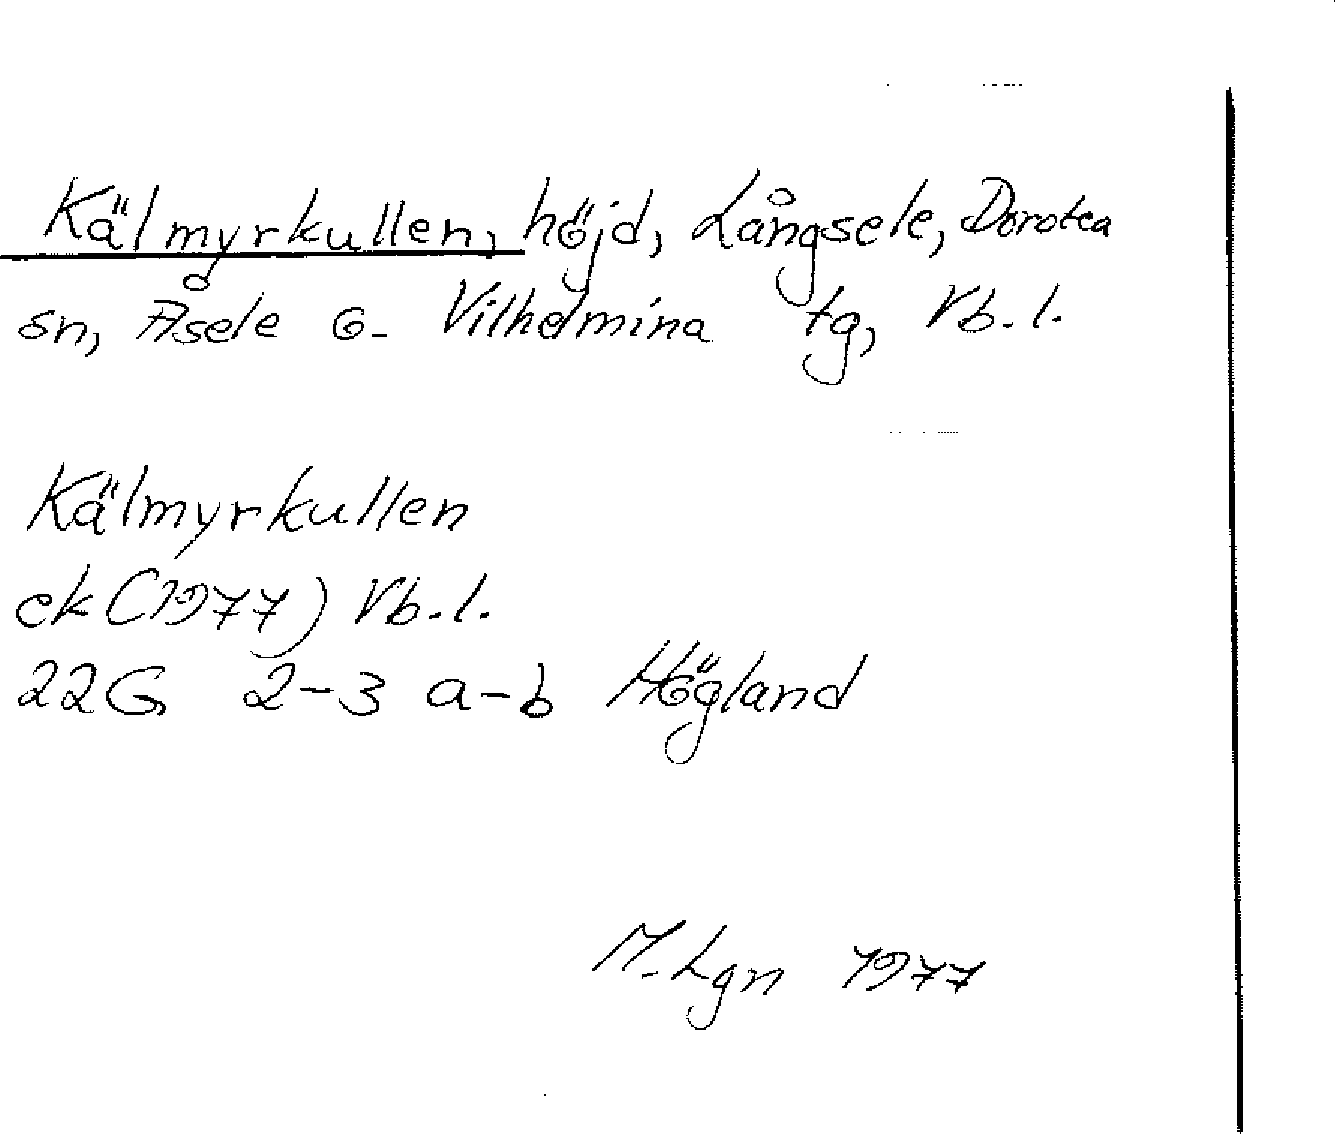 Kälmyrkullen, höjd, Långsele, Dorotea
sn, Åsele o. Vilhelmina tg, Vb. l.
Kälmyrkullen
ek (1977) Vb. l.
22G 2-3 a-b Högland
M. Lgn 1977